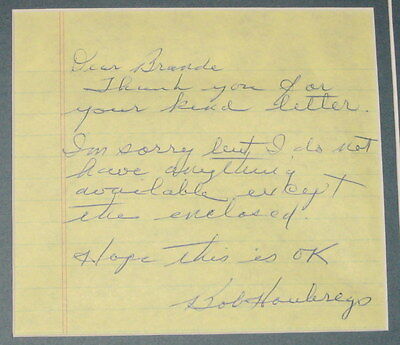 Dear Brande
Thank you for
your kind letter.
I'm sorry but I do not
have anything
available except
the enclosed.
Hope this is OK
Bob Houbregs